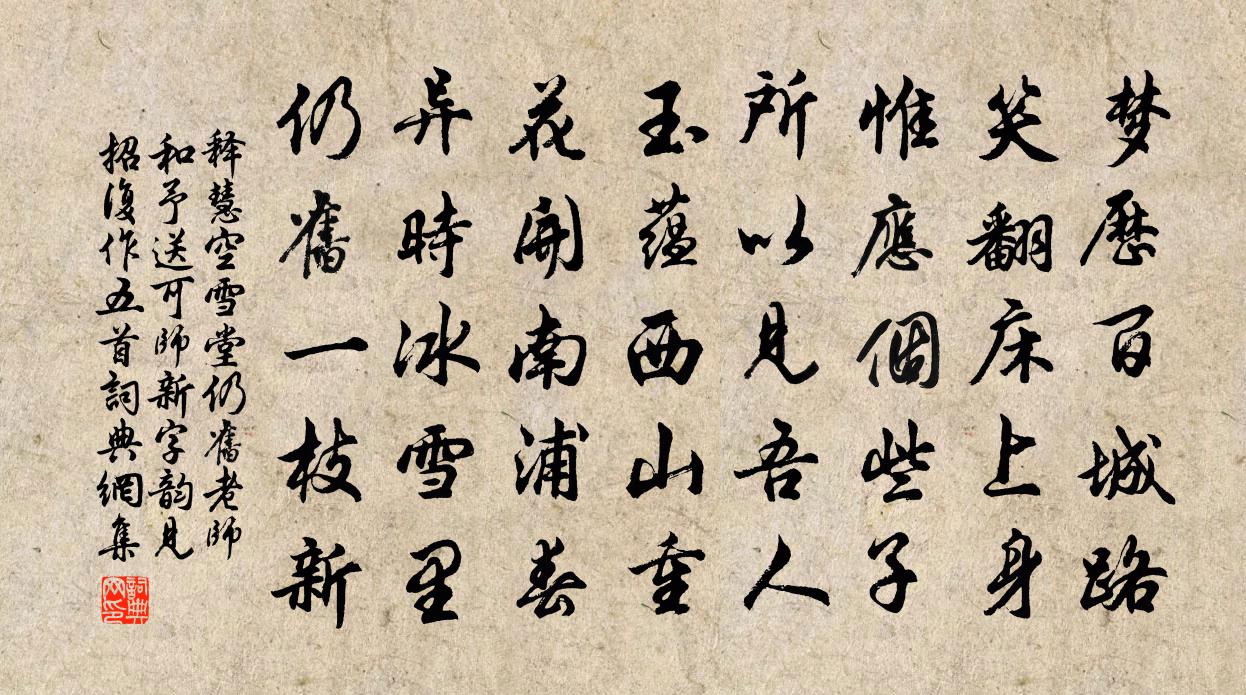 梦歷百城路
笑翻床上身
惟應個些子
所以見吾人
玉蘊西山重
花開南浦春
异時冰雪里
仍舊一枝新
释慧空雪堂仍舊老師
和予送可師新字韵見
招復作五首詞典網集
詞典网印